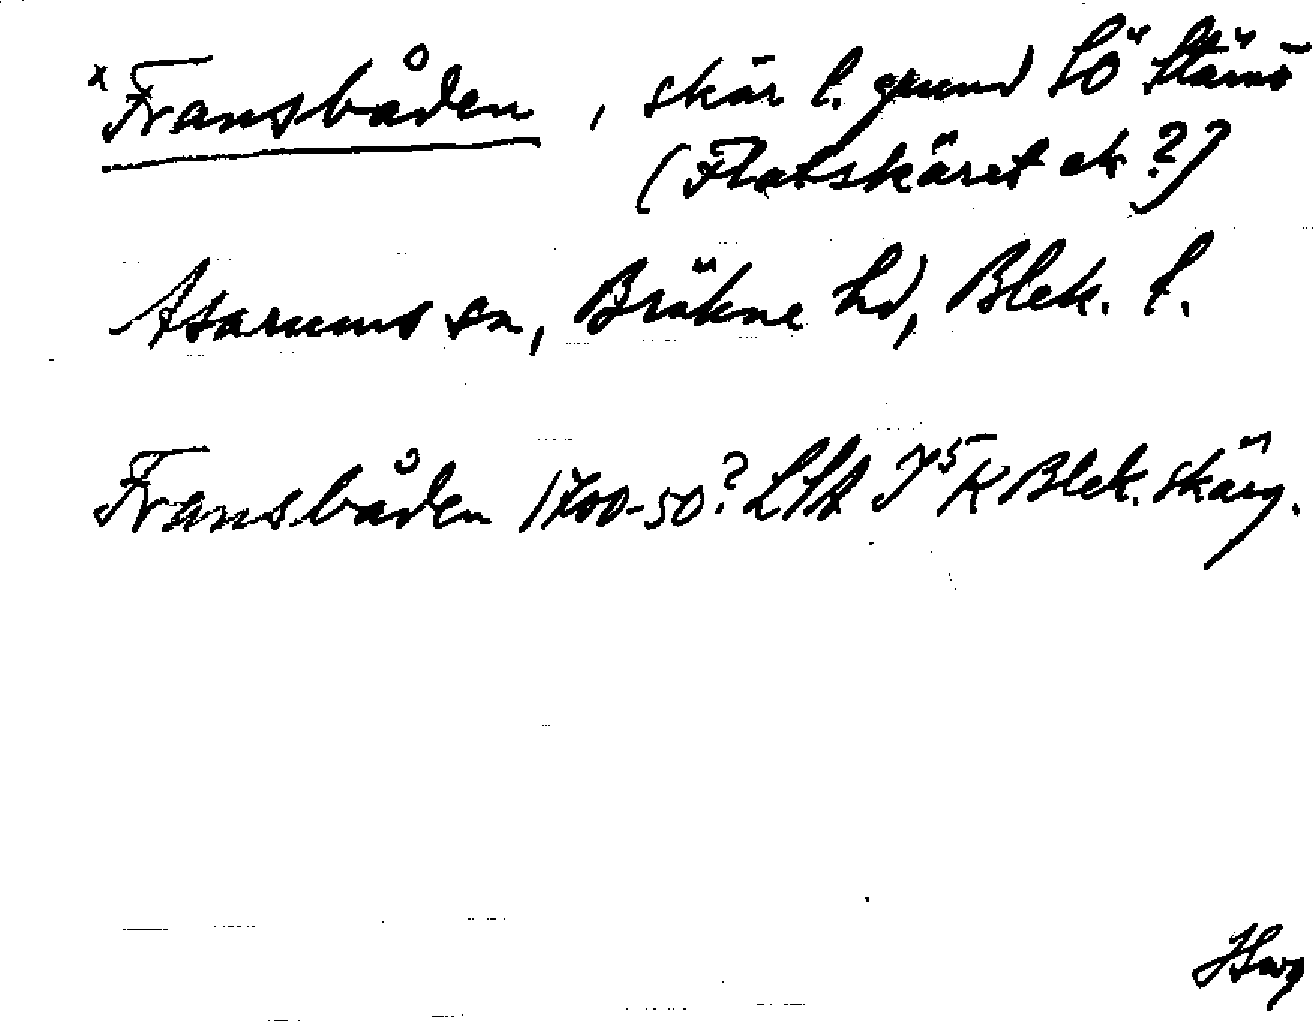 x Fransbåden, skär l. grund SÖ Stärnö
(Flatskäret ek ?)
Asarums sn, Bräkne hd, Blek. l.
Fransbåden 1700-50? LSA I 5 K Blek. skärg.